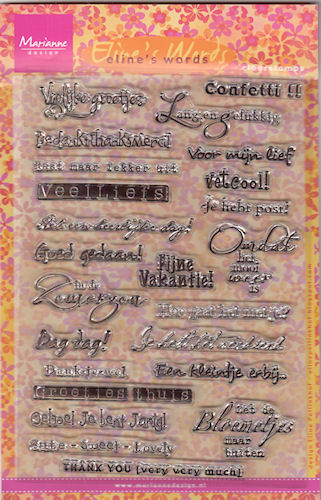 Marianne
design
Eline's Words
eline's words
clearstamps
Vrolijke groetjes
Confetti !!
Lang en gelukkig
Bedankt hanks merci
Voor mijn lief
Laat maar lekker uit
Vet cool!
Veel Liefs
Je hebt post!
Goed gedaan!
Omdat
het
mooi
weer
is
Fijne
Vakantie!
in de
Zomerzon
Hoe gaat het met je?
Dag dag!
Ik
Dankjewel
Een kleintje erbij..
Groetjes thuis
Gehoei Je bent Jarig!
Zet de
Bloemetjes
maar
buiten
Cute - Sweet - Lovely
THANK YOU (very very much)
www.mariannedesign.nl